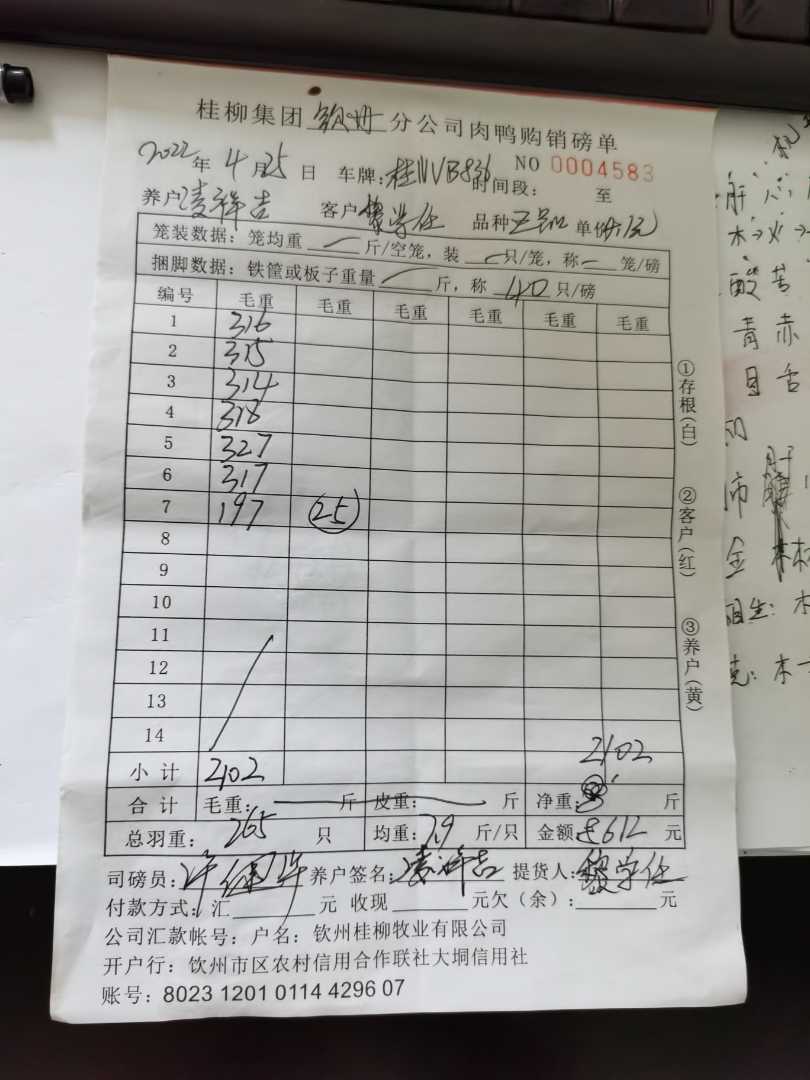 桂柳集团 钦州 分公司肉鸭购销磅单
2022年4月25日 车牌:桂NVB836 NO 0004583
时间段: 至
养户 凌祥吉 客户 黎学任 品种 单价
笼装数据:笼均重 斤/空笼,装 只/笼,称 笼/磅
捆脚数据:铁筐或板子重量 斤,称 40 只/磅
编号 毛重 毛重 毛重 毛重 毛重 毛重
1 316
2 315
3 314
4 318
5 327
6 317
7 197 25
8
9
10
11
12
13
14
小计 2102 2102
合计 毛重: 斤 皮重: 斤 净重: 斤
总羽重: 265 只 均重: 7.9 斤/只 金额: 612 元
司磅员: 养户签名: 凌祥吉 提货人: 黎学任
付款方式:汇 元 收现 元欠(余): 元
公司汇款帐号:户名:钦州桂柳牧业有限公司
开户行:饮州市区农村信用合作联社大垌信用社
账号:8023 1201 0114 4296 07
①存根(白)
②客户(红)
③养户(黄)
肝 心
木→火→
酸 苦
青 赤
目 舌
肝
金 木
相生: 木
克: 木